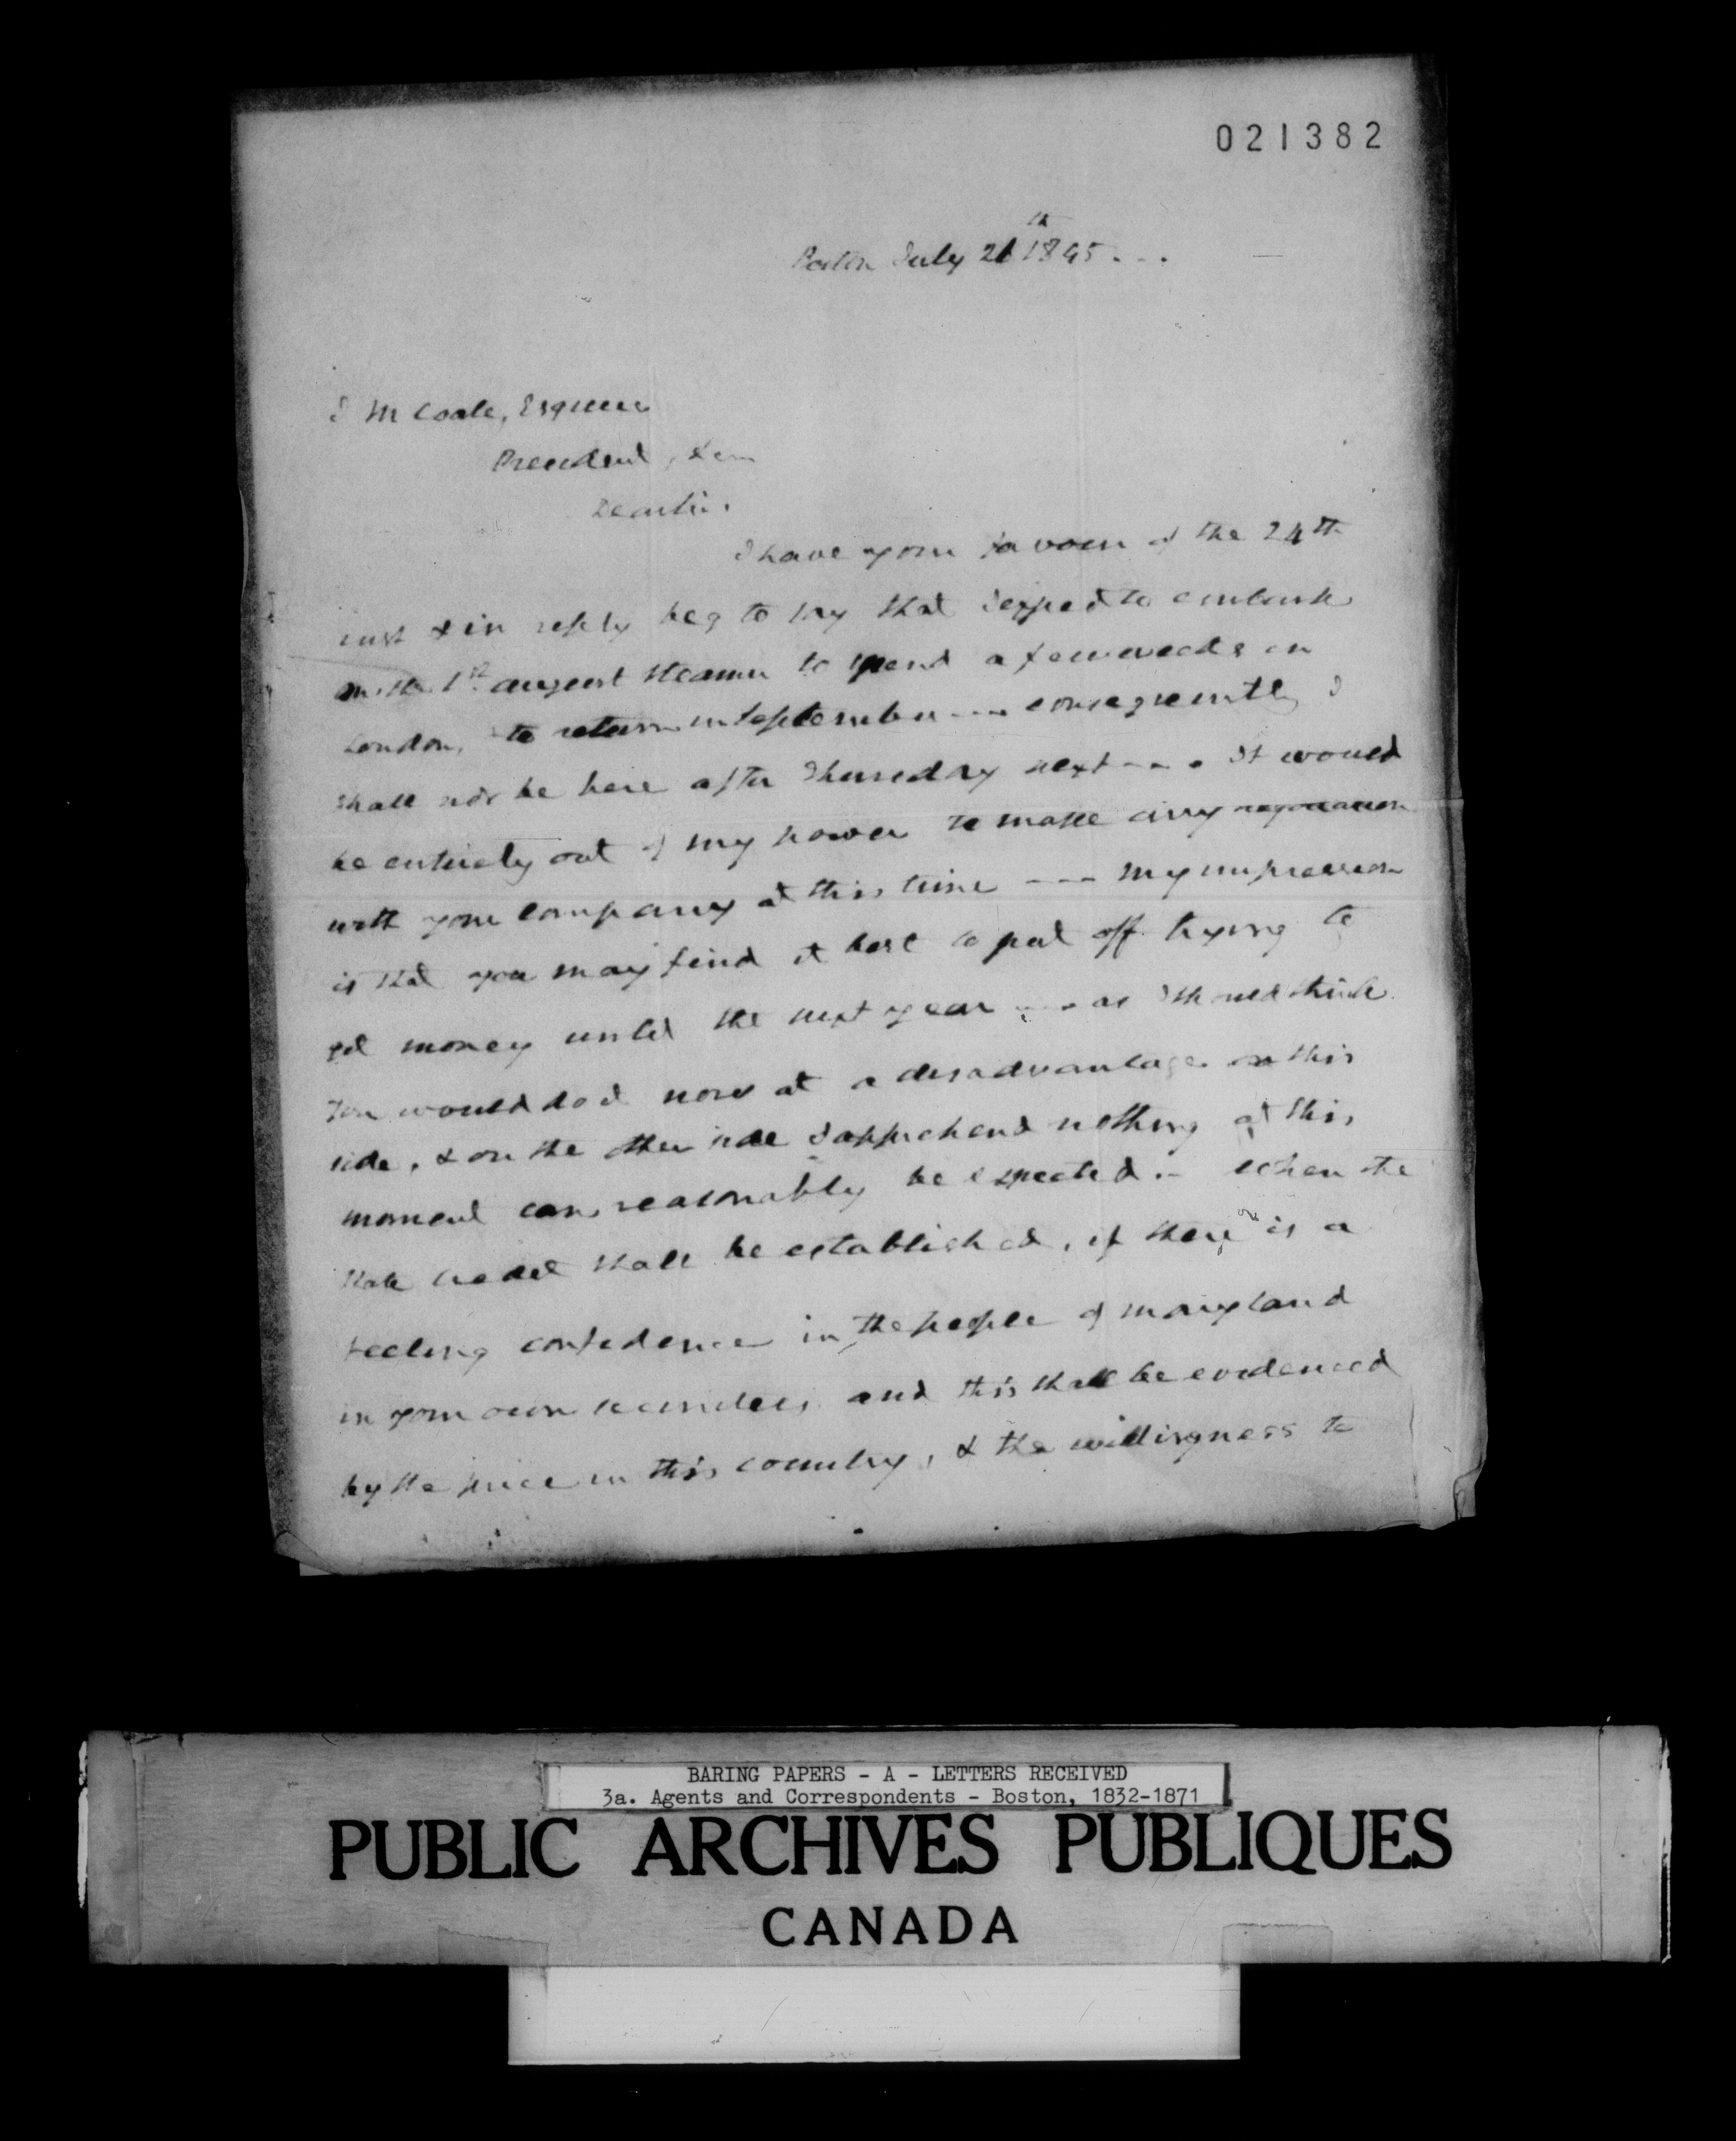 021382
Boston July 26th 1845...
J M Coale, Esquire
President, &c
Dear Sir,
I have your favour of the 24th
inst & in reply beg to say that I expect to embark
in the 1st august steamer to spend a few weeks in
London, to return in September --- consequently I
shall not be here after Thursday next --- It would
be entirely out of my power to make any negotiation
with your company at this time --- my impression
is that you may find it best to put off trying to
get money until the next year --- as I should think
you would do it now at a disadvantage on this
side, & on the other side I apprehend nothing at this
moment can reasonably be expected. - When the
State credit shall be established, if there is a
feeling confidence in the people of maryland
in your own and this shall be evidenced
by the price in this country, & the willingness to
BARING PAPERS - A - LETTERS RECEIVED
3a. Agents and Correspondents - Boston, 1832-1871
PUBLIC ARCHIVES PUBLIQUES
CANADA